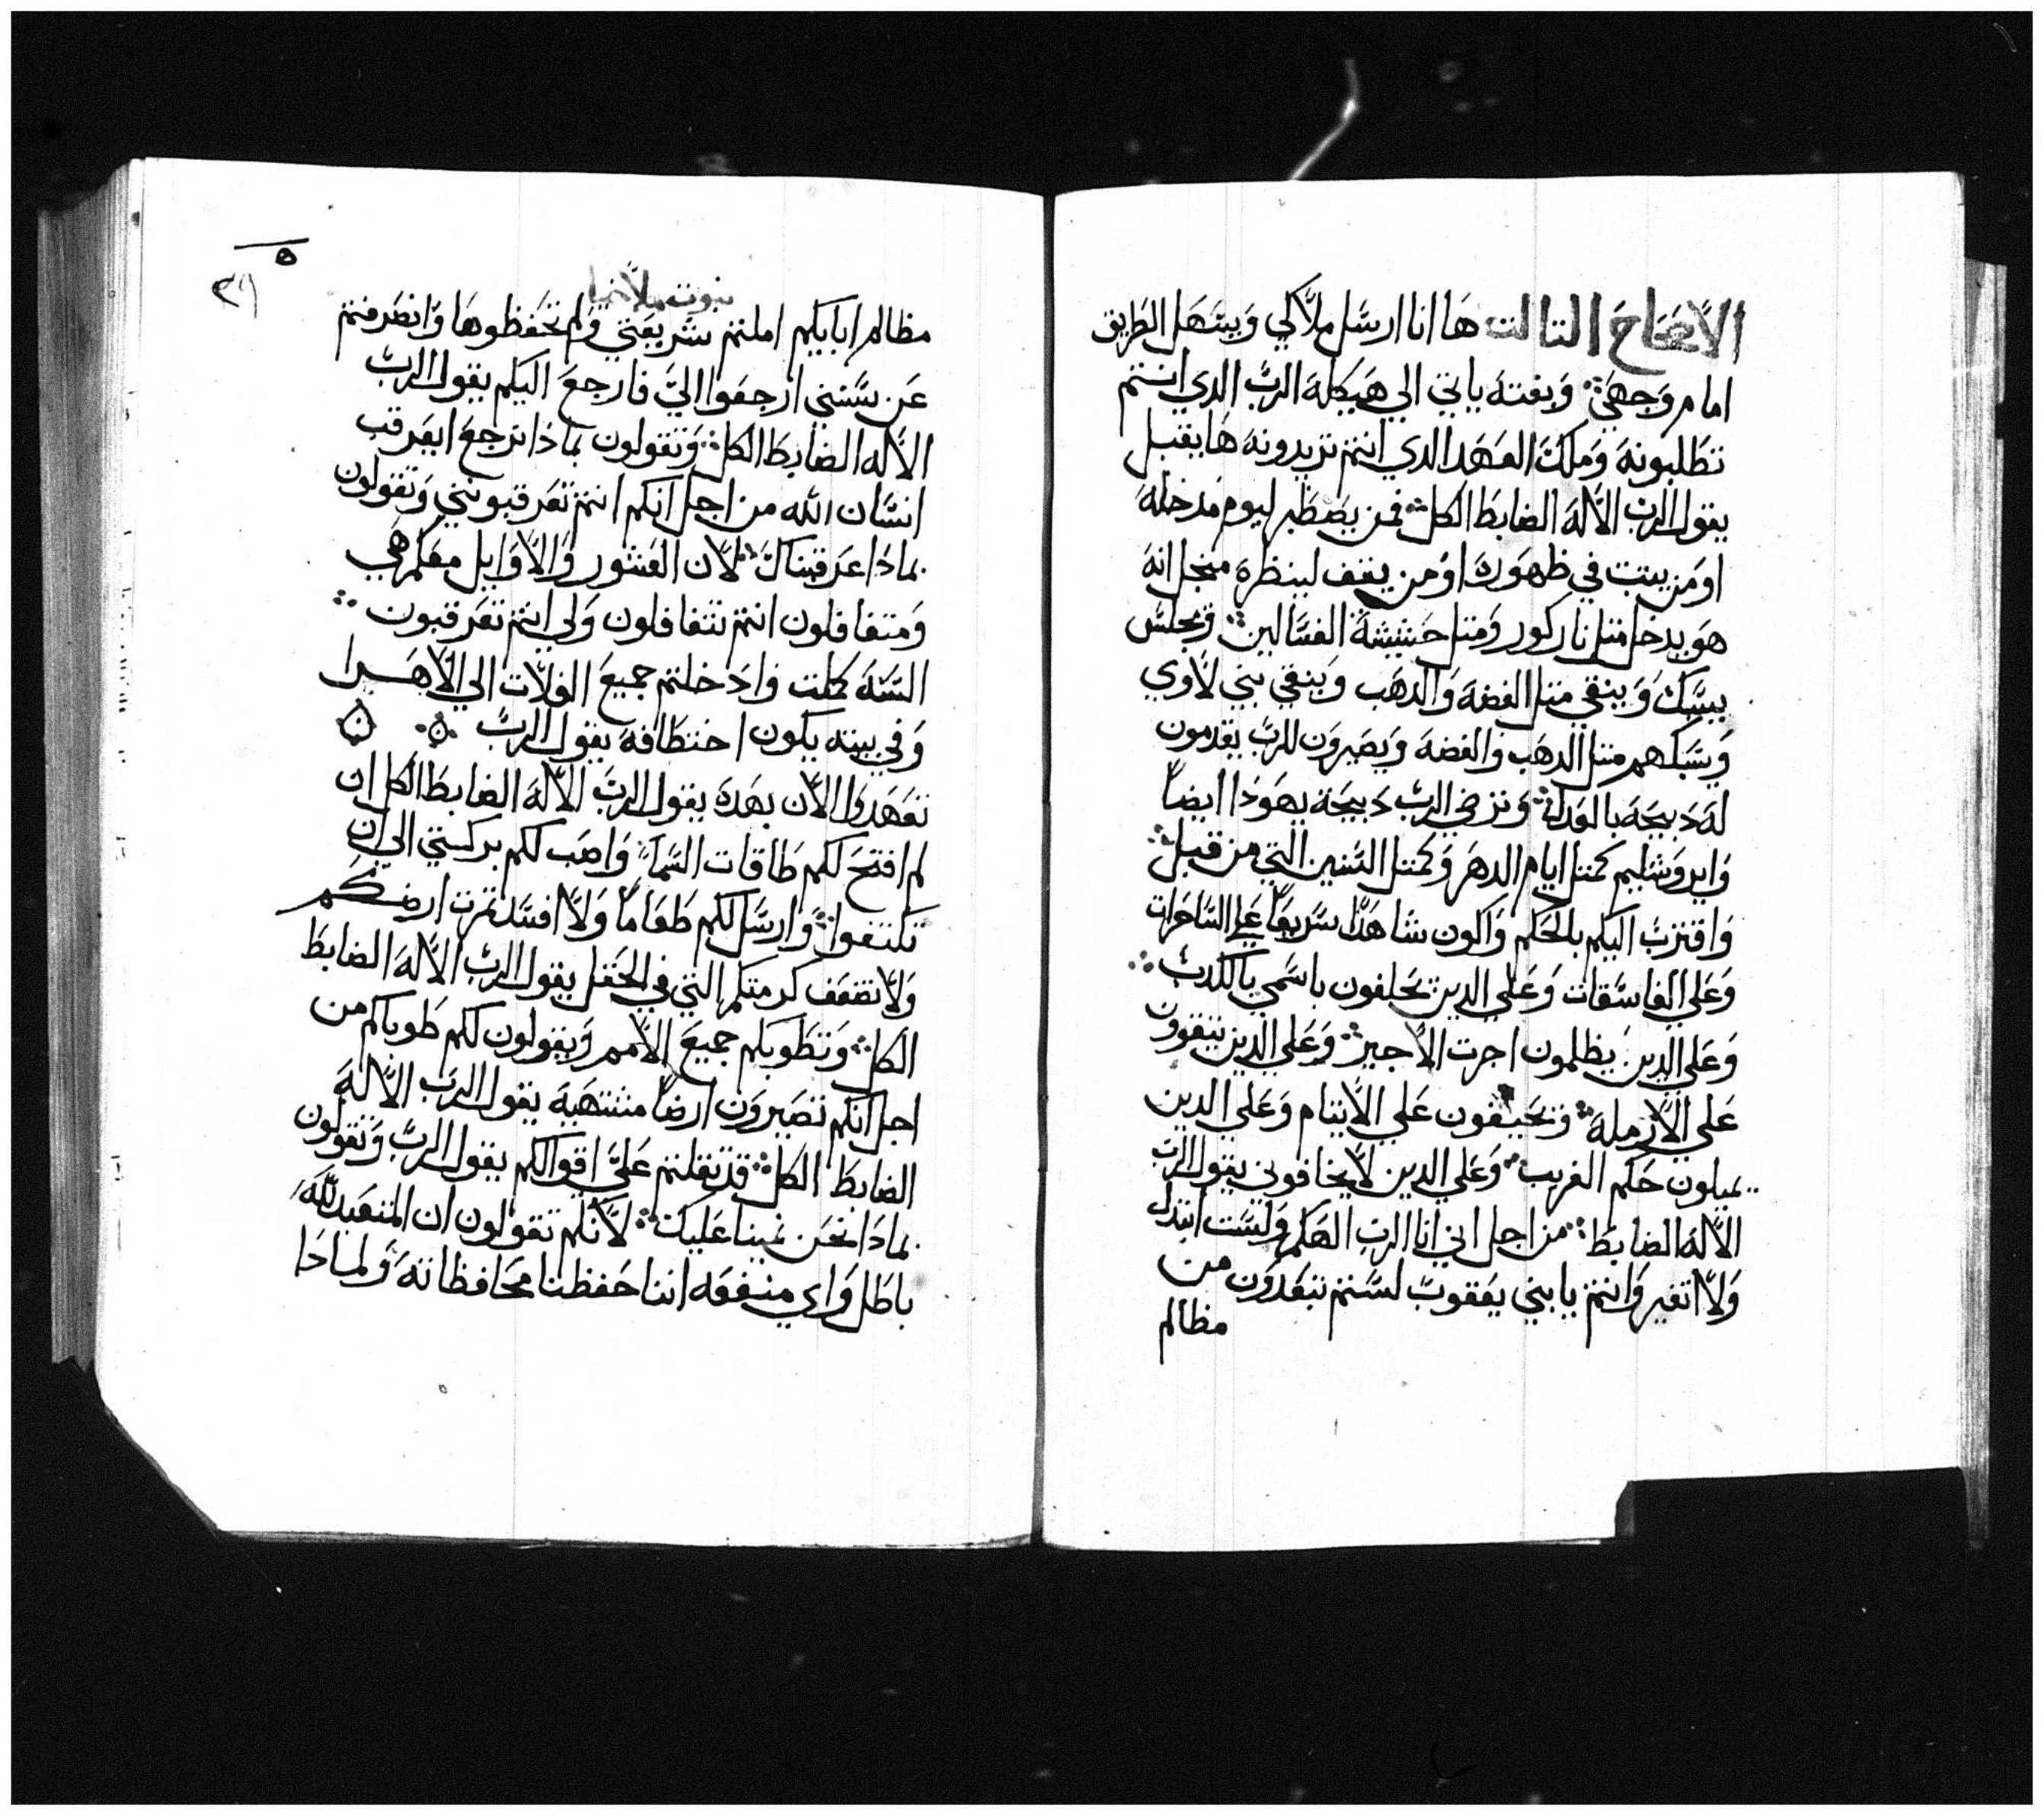 الاصحاح التالت ها انا ارسل ملاكي ويسهل الطريق
امام وجهي؛ وبغته ياتي الي هيكله الرب الدي انتم
تطلبونه وملك العهد الدي انتم تريدونه ها يقبل
يقول الرب الاله الضابط الكل؛ فمن يصطبر ليوم مدخله
او من يتبت في ظهوره او من يقف لينظره منجل انه
هو يدخل متل نار كور ومتل حشيشة الغسالين؛ ويجلس
يسبك وينقي متل الفضه والدهب وينقي بني لاوي
ويسبكهم متل الدهب والفضه ويصيرون للرب يقدمون
له دبيحه بالعداله؛ وترضي الرب دبيحة يهودا ايضاً
وايروشليم كمتل ايام الدهر وكمتل السنين التي من قبل؛
واقترب اليكم بالحكم واكون شاهداً سريعاً علي الساحرات
وعلي الفاسقات وعلي الدين يحلفون باسمي بالكدب؛
وعلي الدين يظلمون اجرت الاجير؛ وعلي الدين يتقوون
علي الارمله؛ ويحيفون علي الايتام وعلي الدين
يميلون حكم الغريب؛ وعلي الدين لا يخافوني يقول الرب
الاله الضابط؛ من اجل اني انا الرب الهكم ولست اتبدل
ولا اتغير وانتم يا بني يعقوب لستم تبعدون من
مظالم
نبوت ملاخيا
٥
مظالم ابايكم املتم شريعتي ولم تحفظوها وانصرفتم
عن سنني ارجعوا اليّ فارجع اليكم يقول الرب
الاله الضابط الكل؛ وتقولون بماذا نرجع ايعرقب
انسان الله من اجل انكم انتم تعرقبونني وتقولون
بماذا عرقبناك؛ لان العشور والاوايل معكم هي
ومتغافلون انتم تتغافلون ولي انتم تعرقبون؛
السنه كملت وادخلتم جميع الغلات الي الاهرا
وفي بيته يكون اختطافه يقول الرب
تعهدوا الان بهده يقول الرب الاله الضابط الكل ان
لم افتح لكم طاقات السما؛ واصب لكم بركتي الي ان
تكتفوا؛ وارسل لكم طعاماً ولا افسد تمرت ارضكم
ولا تضعف كرمتكم التي في الحقل يقول الرب الاله الضابط
الكل؛ وتطوبكم جميع الامم ويقولون لكم طوباكم من
اجل انكم تصيرون ارضاً مشتهيه يقول الرب الاله
الضابط الكل؛ قد تقلتم عليّ اقوالكم يقول الرب وتقولون
بماذا نحن نمينا عليك؛ لانكم تقولون ان المتعبد لله
باطل واي منفعه اننا حفظنا محافظاته ولماذا